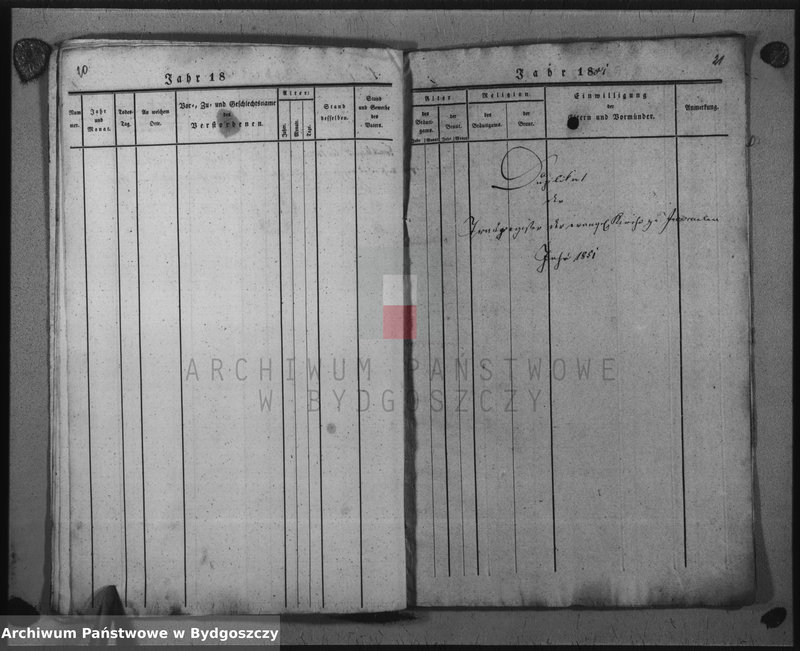 20
Jahr 18
Num
mer.
Jahr
und
Monat.
Todes-
Tag.
An welchem
Orte.
Vor-, Zu- und Geschlechtsname
des
Verstorbenen.
Alter:
Jahr.
Monate.
Tage.
Stand
desselben.
Stand
und Gewerbe
des
Vaters.
21
Jahr 1851
Alter
des
Bräuti-
gams.
der
Braut.
Jahr
Monat
Jahr
Monat
Religion.
des
Bräutigams.
der
Braut.
Einwilligung
der
Eltern und Vormünder.
Anmerkung.
Duplikat
der
Trauregister der evangel. Kirche zu
Jahr 1851
ARCHIWUM PAŃSTWOWE
W BYDGOSZCZY
Archiwum Państwowe w Bydgoszczy